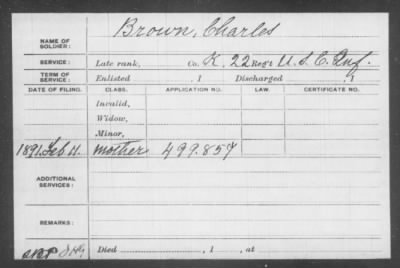 Brown, Charles
NAME OF SOLDIER:
SERVICE: Late rank, Co. K, 22 Reg't U.S.C. Inf.
TERM OF SERVICE: Enlisted , 1 Discharged , 1
DATE OF FILING. CLASS. APPLICATION NO. LAW. CERTIFICATE NO.
Invalid,
Widow,
Minor,
1891 Feb 11. mother 499.857
ADDITIONAL SERVICES:
REMARKS:
Died , 1 , at